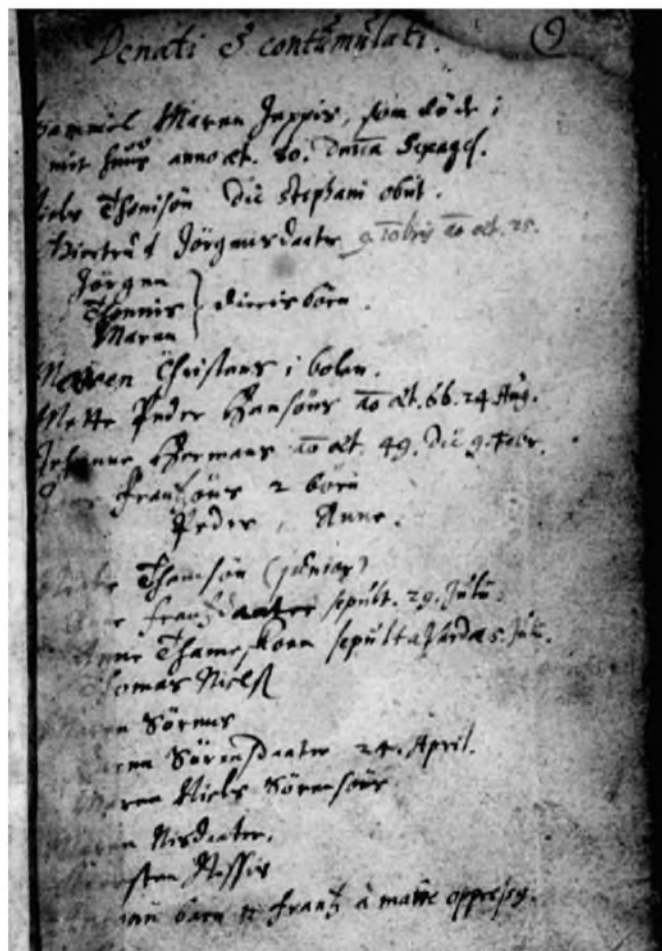 Denati & contumulati. 9
Gammel Maren Jeppis, som döde i
mit huus anno æt. 80. Dnica Sexages.
Niels Thomsön Die Stephani obiit.
Diertrud Jörgensdaater 9. 10bris ao æt. 25.
Jörgen
Thonnis
Maren
börn.
Maren Christens i bolen.
Mette Peder Hansöns ao æt. 66. 24 Aug.
Johanne Hermans ao æt. 49. Die 9. Febr.
Frantzöns 2 börn
Peder, Anne.
Thomsön (junior)
Frantzdaater sepult. 29. Julii.
Anne Thames sepulta Julii.
Thomas Niels
Sörens
Sörensdaater 24. April.
Maren Niels Sörensöns
Nisdaater.
Nissis
barn Frantz à matre oppressq.